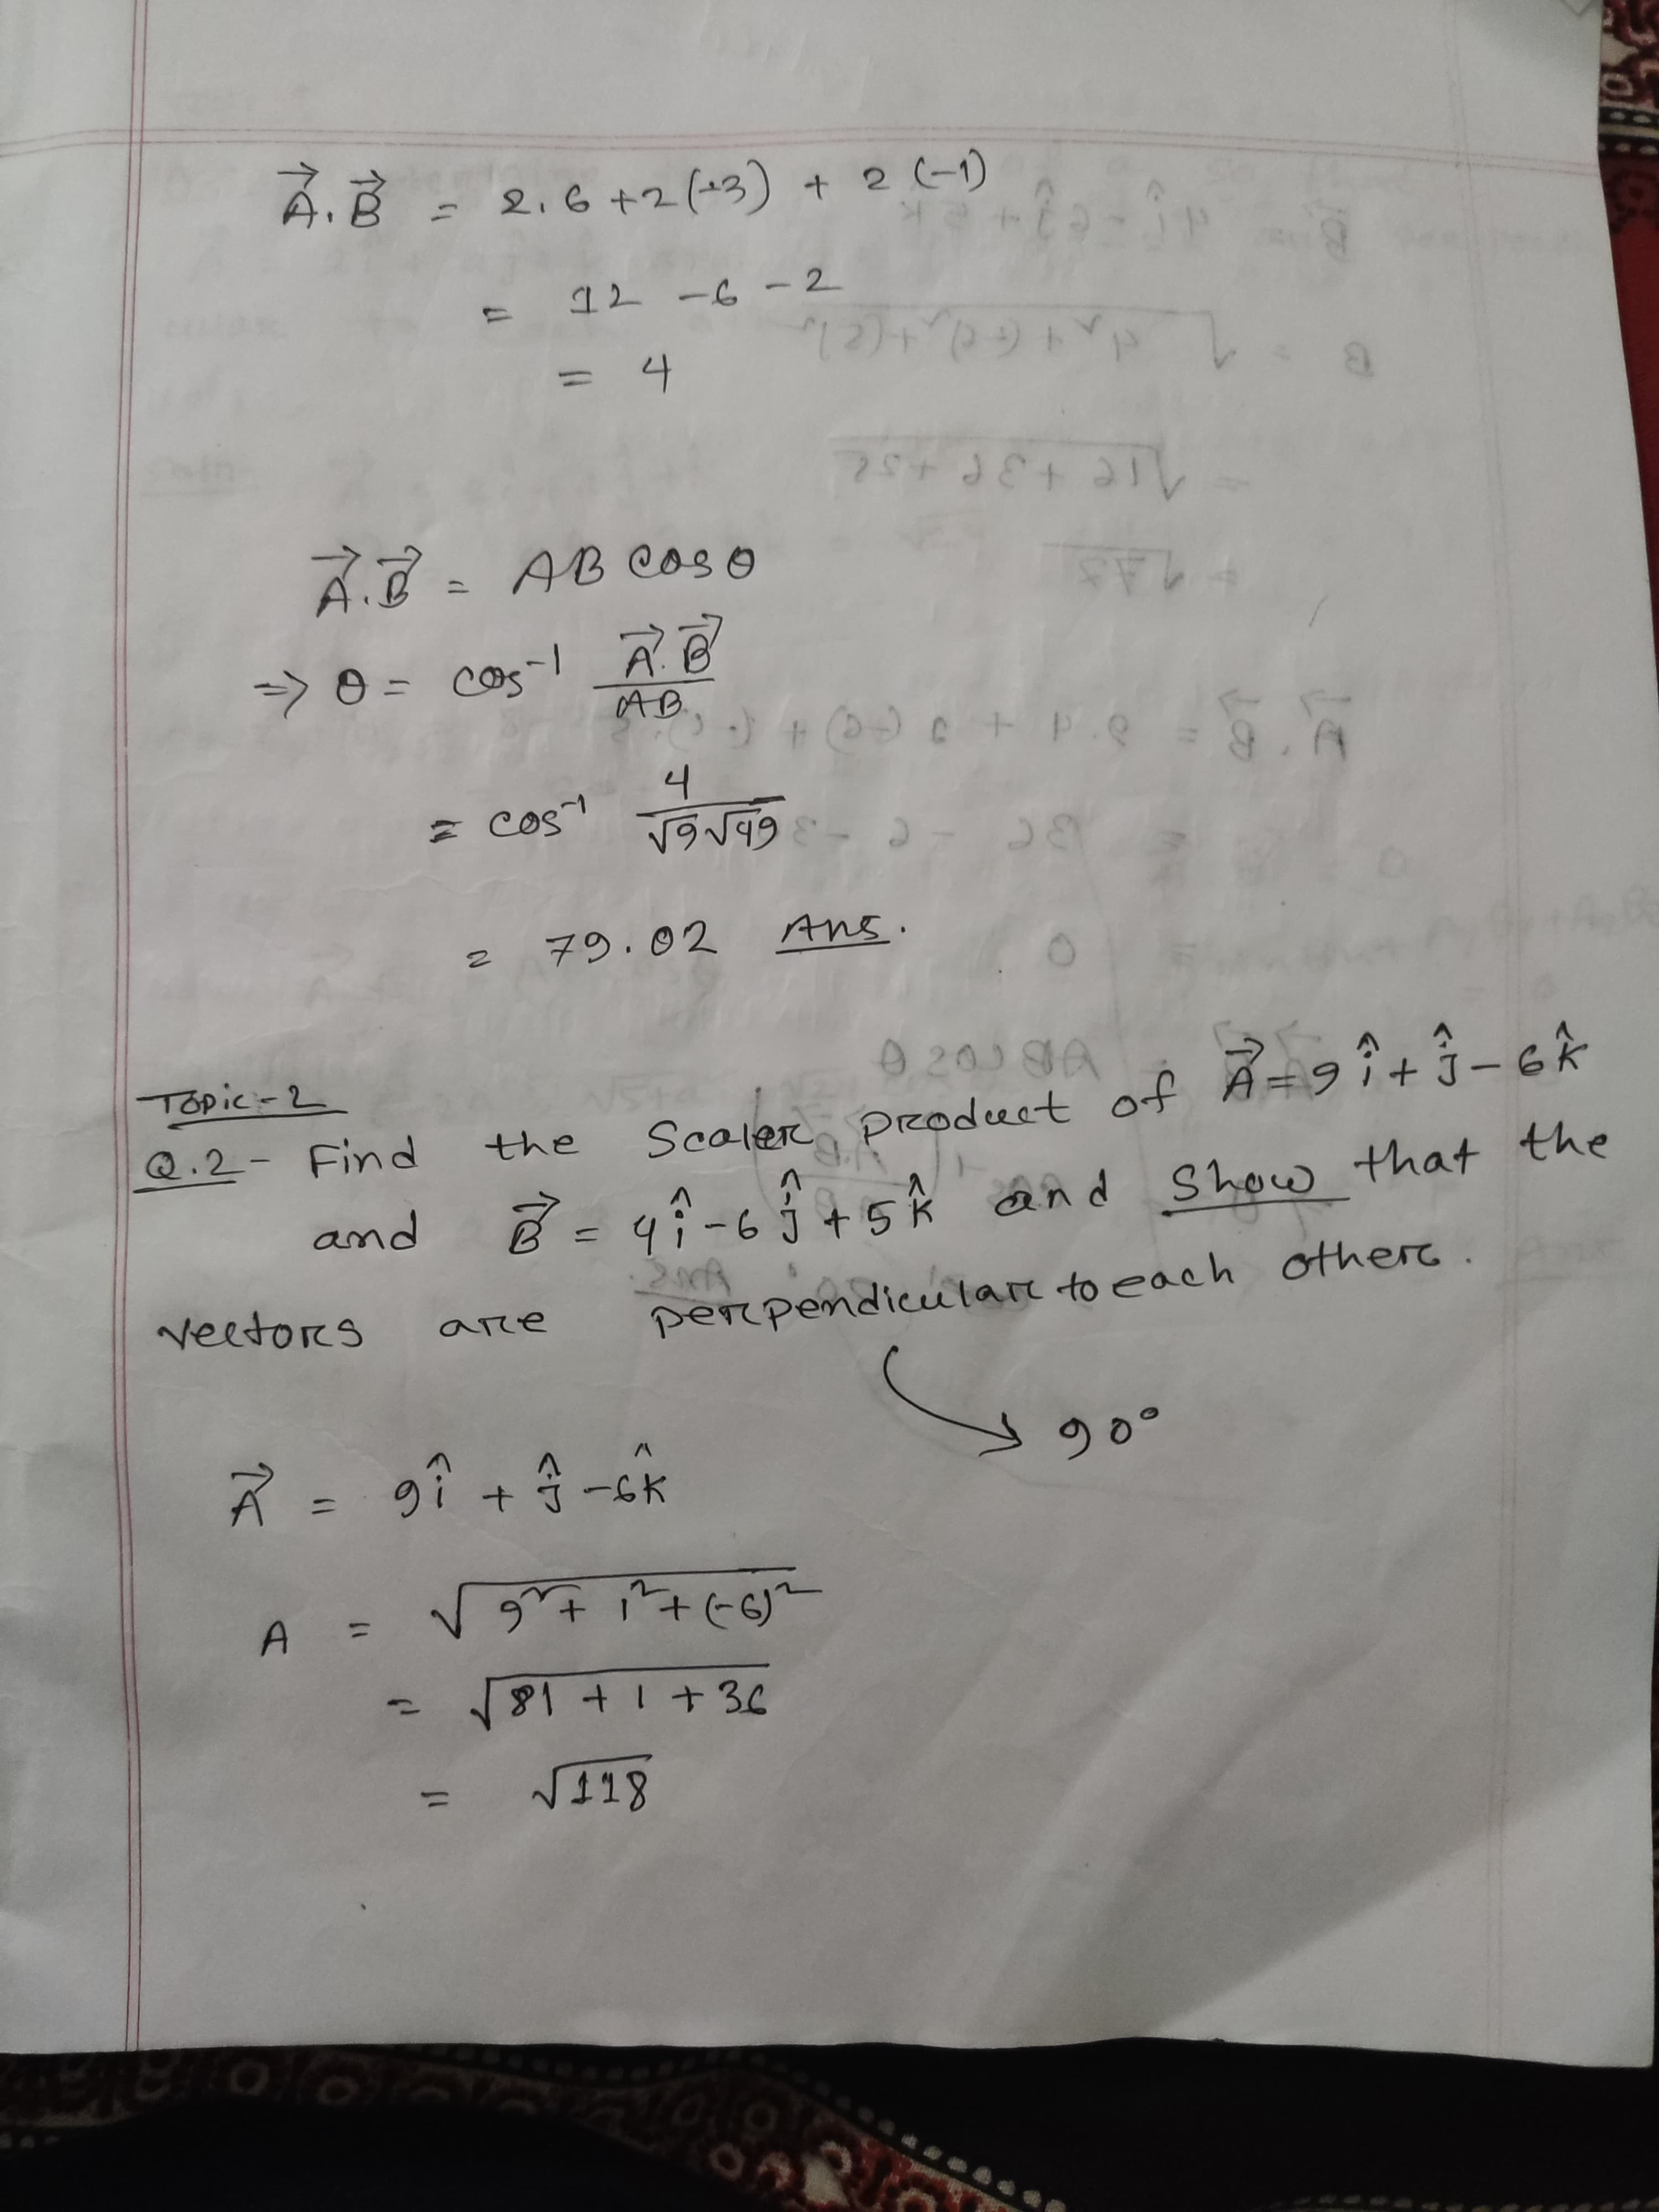 A⃗.B⃗ = 2.6 + 2(-3) + 2(-1)
= 12 - 6 - 2
= 4
A⃗.B⃗ = AB cosθ
=> θ = cos⁻¹ A⃗.B⃗/AB
= cos⁻¹ 4/√9√49
= 79.02 Ans.
Topic-2
Q.2- Find the Scaler product of A⃗ = 9î + ĵ - 6k̂
and B⃗ = 4î - 6ĵ + 5k̂ and Show that the
vectors are perpendicular to each other.
90°
A⃗ = 9î + ĵ - 6k̂
A = √9² + 1² + (-6)²
= √81 + 1 + 36
= √118